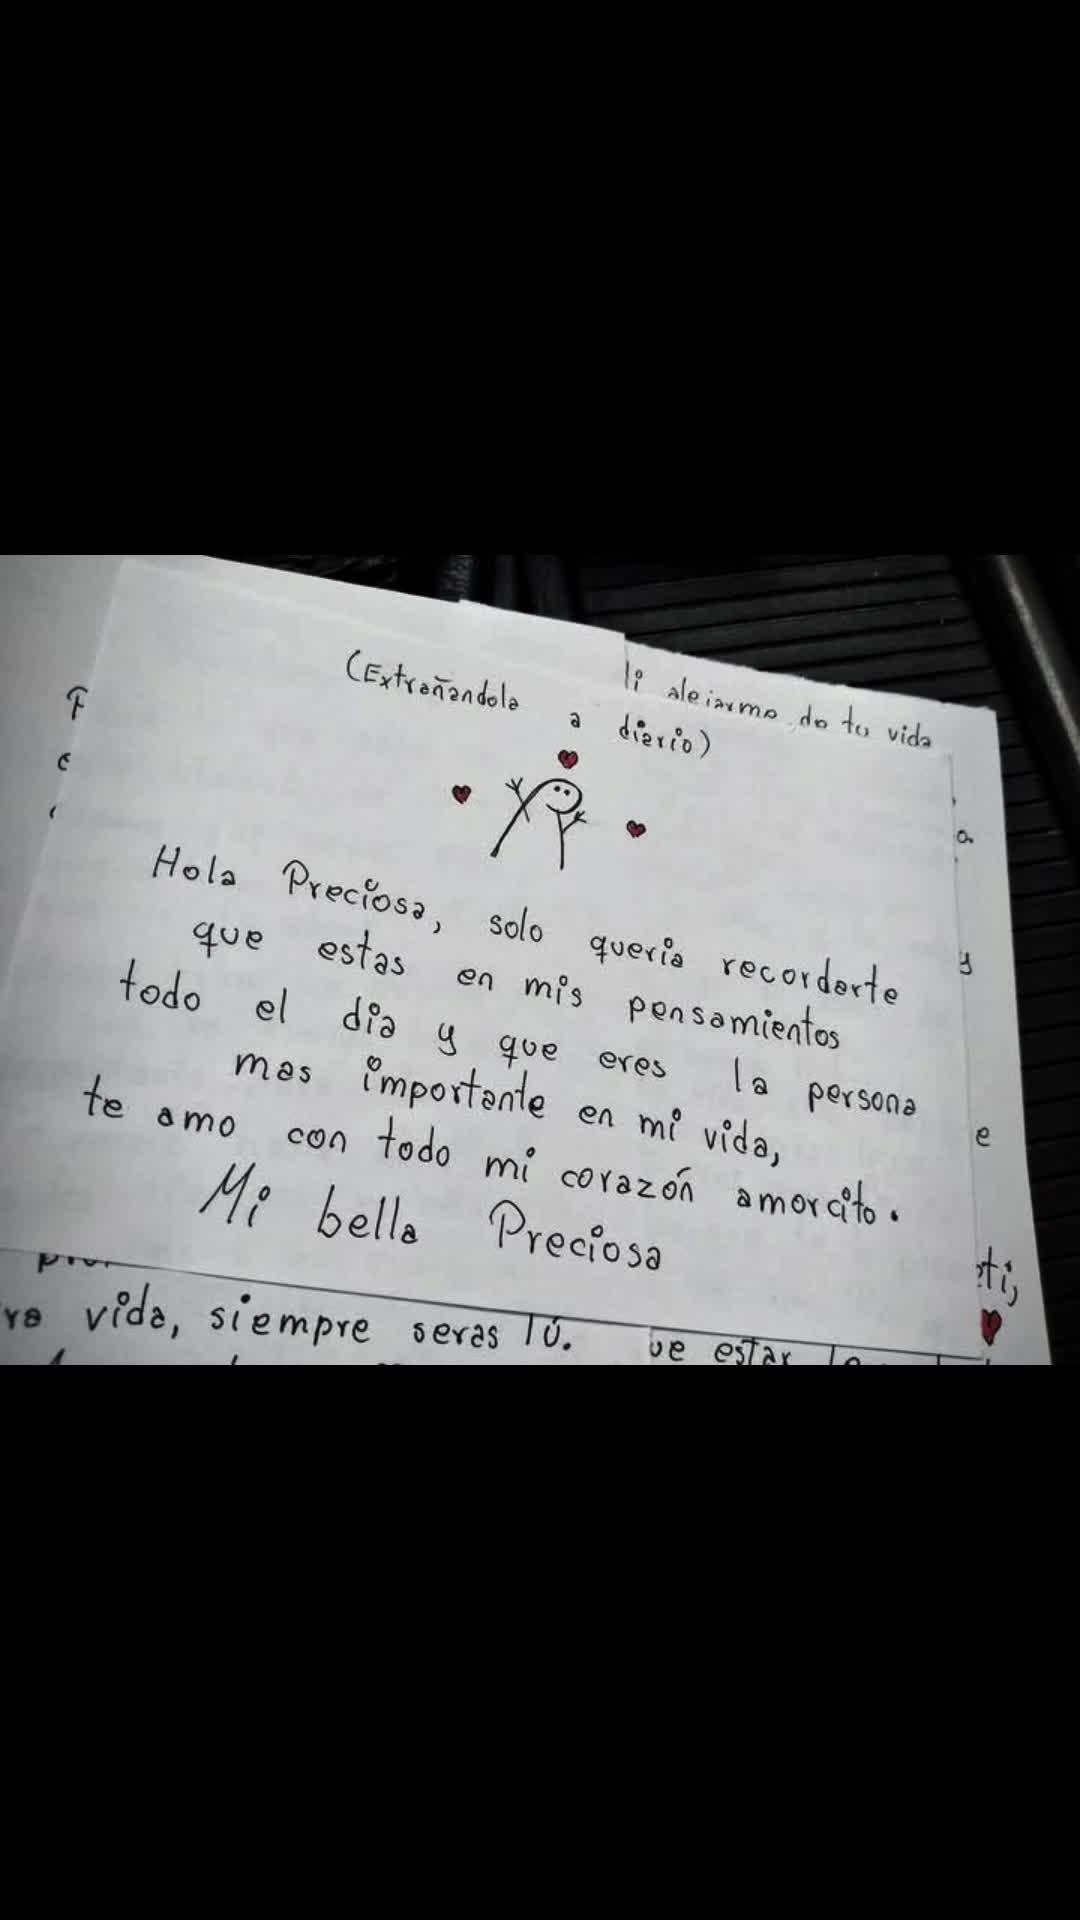 (Extrañandola a diario)
Hola Preciosa, solo queria recordarte
que estas en mis pensamientos
todo el dia y que eres la persona
mas importante en mi vida,
te amo con todo mi corazón amorcito.
Mi bella Preciosa
de tu vida
a
y
e
ti,
vida, siempre seras tú.
estar